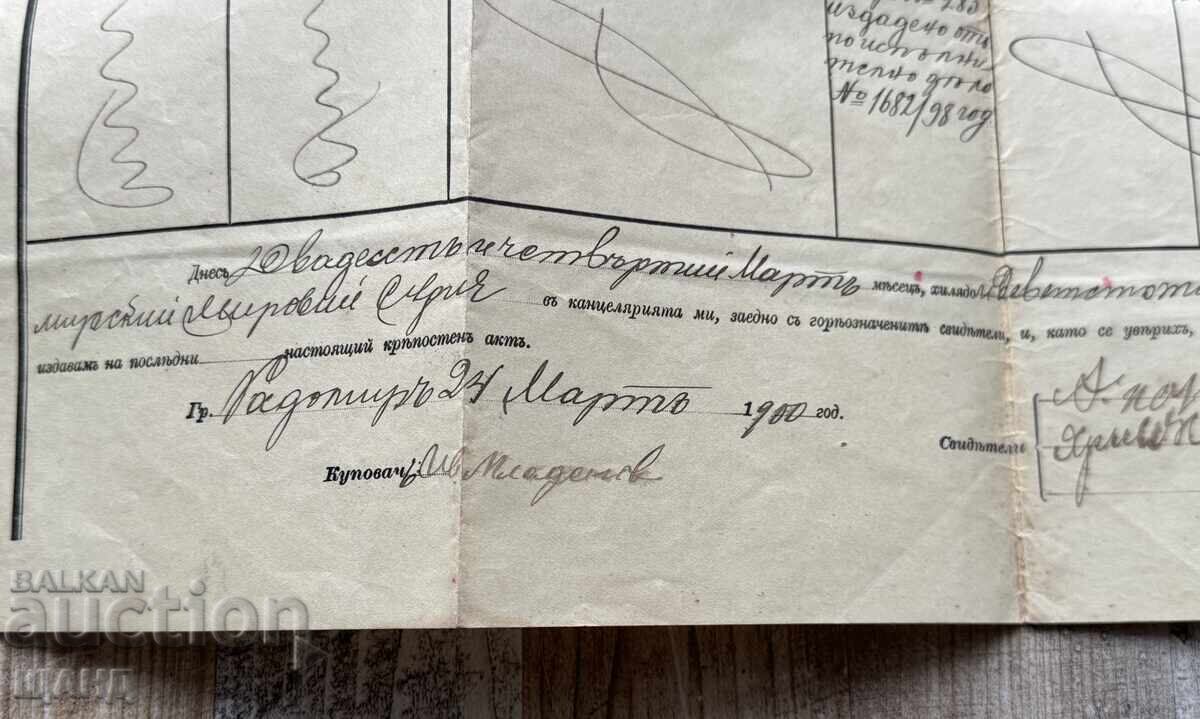 № 283
издадено отъ
по испълни
телно дѣло
№ 1682/98 год
Днесъ Двадесеть и четвъртий Мартъ мѣсецъ, хилядо Деветстот
мирский Мировий Сѫдия въ канцеларията ми, заедно съ горѣозначенитѣ свидѣтели, и, като се увѣрихъ,
издавамъ на послѣдни настоящий крѣпостенъ актъ.
Гр. Радомиръ 24 Мартъ 1900 год.
Куповачъ: Ив Младенов
Свидѣтели
А. Пор
BALKAN
auction
ЩАНД